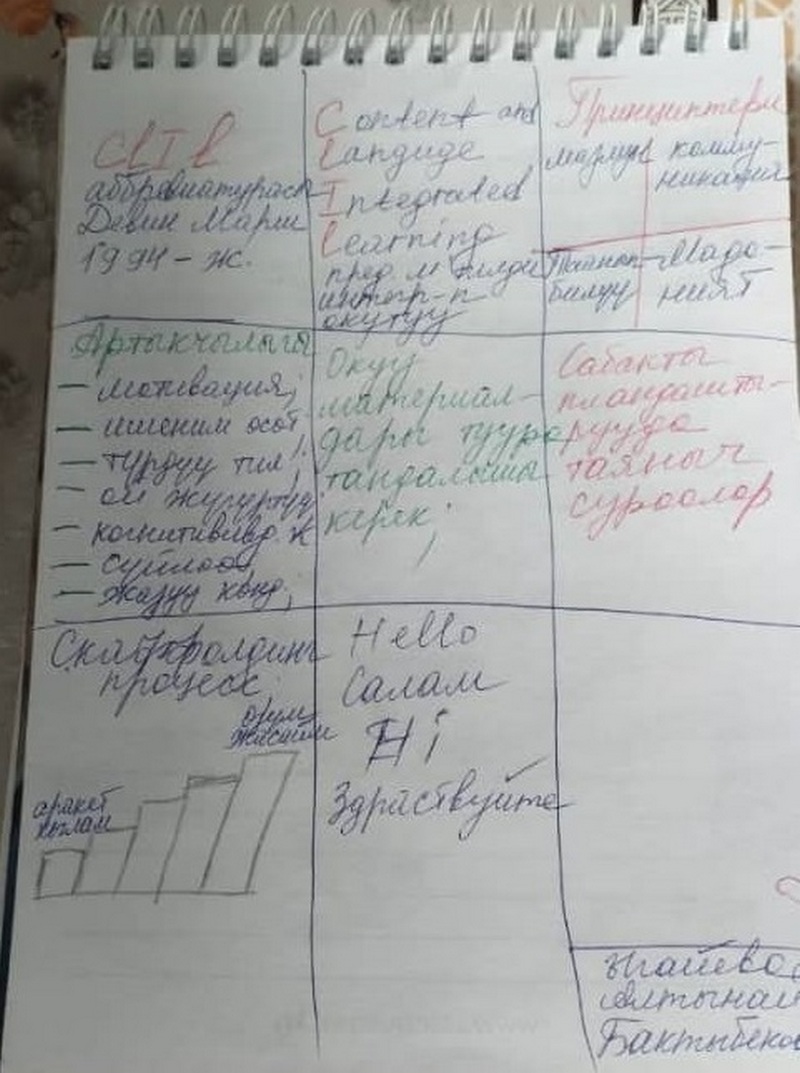 CLIL
аббревиатурасы
Девид Марш
1994-ж.
Content and
Languge
Integrated
Learning
пред. м тилди
интегр-п
окутуу
Принциптери
мазмун
комму-
никация
Таанып-
билүү
Мада-
ният
Артыкчылыгы
- мотивация;
- ишеним
- түрдүү тил;
- ой жүгүртүү;
- когнитивдүү ж
- сүйлөө,
- жазуу көнд;
Окуу
материал-
дары туура
тандалышы
керек;
Сабакты
пландашты-
рууда
таяныч
суроолор
Скаффолдинг
процесс
аракет
кылам
өзүм
жасайм
Hello
Салам
Hi
Здраствуйте
Алтынай
Бактыбеко